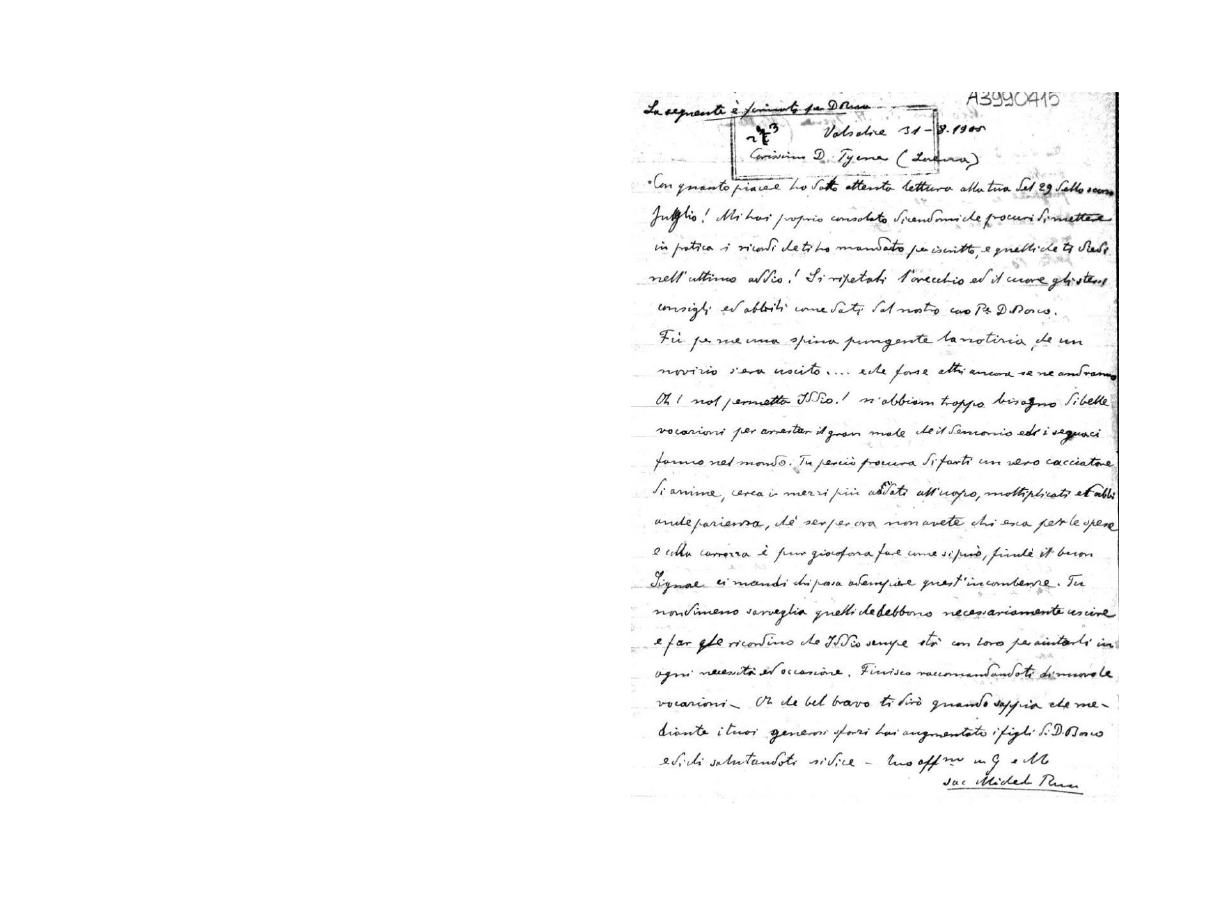 A3990415
La seguente è firmata da D Rua
273
Valsalice 31-8.1905
Carissimo D. Tyena (
"Con quanto piacere ho dato attenta lettura alla tua del 29 dello scorso
Juglio! Mi hai proprio consolato dicendomi che procuri di mettere
in pratica i ricordi che ti ho mandato per iscritto, e quelli che ti diedi
nell'ultimo addio! Si ripetati l'orecchio ed il cuore gli stessi
consigli ed abbili come dati dal nostro caro Pe D. Bosco.
Fù per me una spina pungente la notizia che un
novizio s'era uscito.... e che forse altri ancora se ne andranno
Oh! nol permetta Iddio! n'abbiam troppo bisogno di belle
vocazioni per arrestar il gran male che il demonio ed i seguaci
fanno nel mondo. Tu perciò procura di farti un vero cacciatore
di anime, cerca i mezzi più adatti all'uopo, moltiplicati ed abbi
anche pazienza, chè se per ora non avete chi esca per le spese
e colla carrozza è pur giocoforza fare come si può, finchè il buon
Signore ci mandi chi possa adempiere quest'incombenze. Tu
nondimeno sorveglia quelli che debbono necessariamente uscire
e far che ricordino che Iddio sempre stà con loro per aiutarli in
ogni necessità ed occasione. Finisco raccomandandoti di nuovo le
vocazioni_ Oh che bel bravo ti dirò quando sappia che me-
diante i tuoi generosi sforzi hai augmentato i figli di D. Bosco
e di chi salutandoti si dice - tuo affmo in G e M
sac Michele Rua